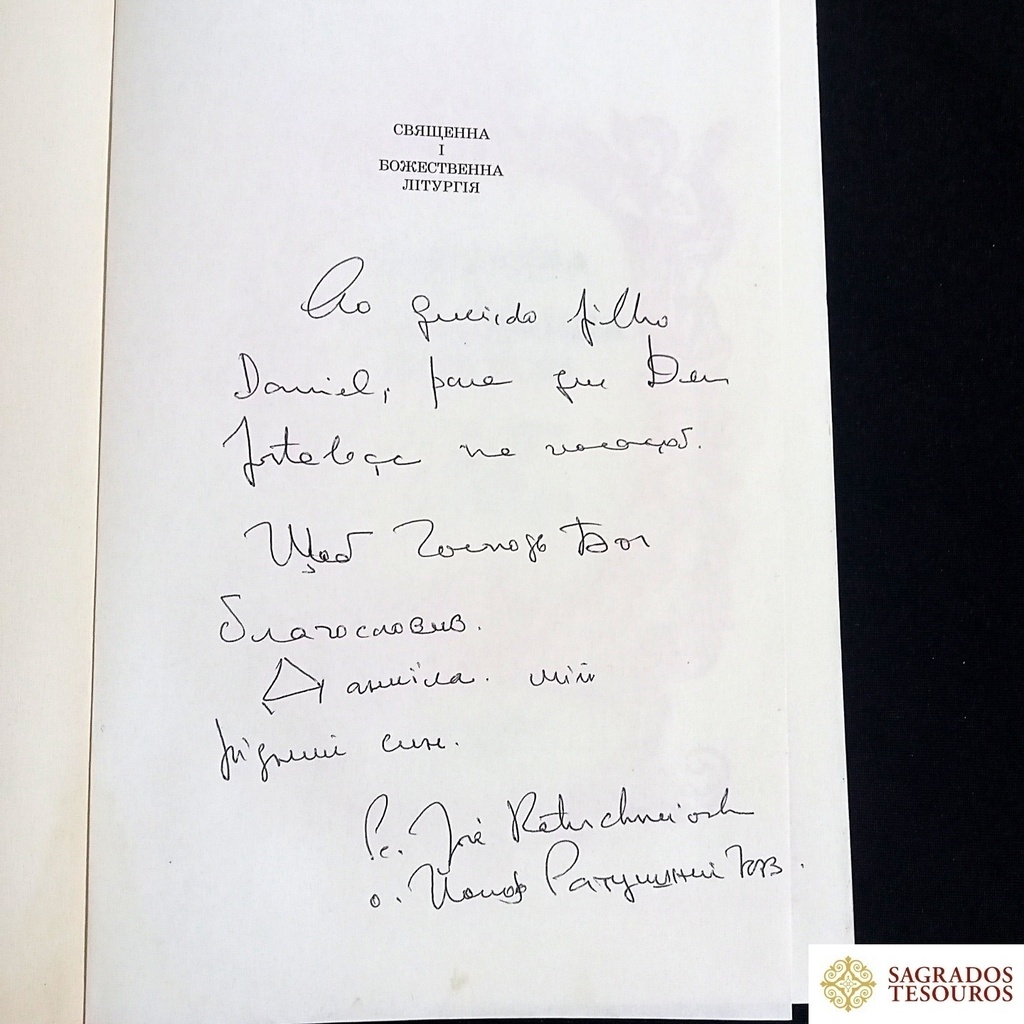 СВЯЩЕННА
І
БОЖЕСТВЕННА
ЛІТУРГІЯ
Ao querido filho
Daniel, para que Deus
fortaleça na vocação.
Щоб Господь Бог
благословив.
Даниїла. мій
рідний сине.
Pe. José Ratuschneiosk
о. Йосиф Ратушний
SAGRADOS
TESOUROS